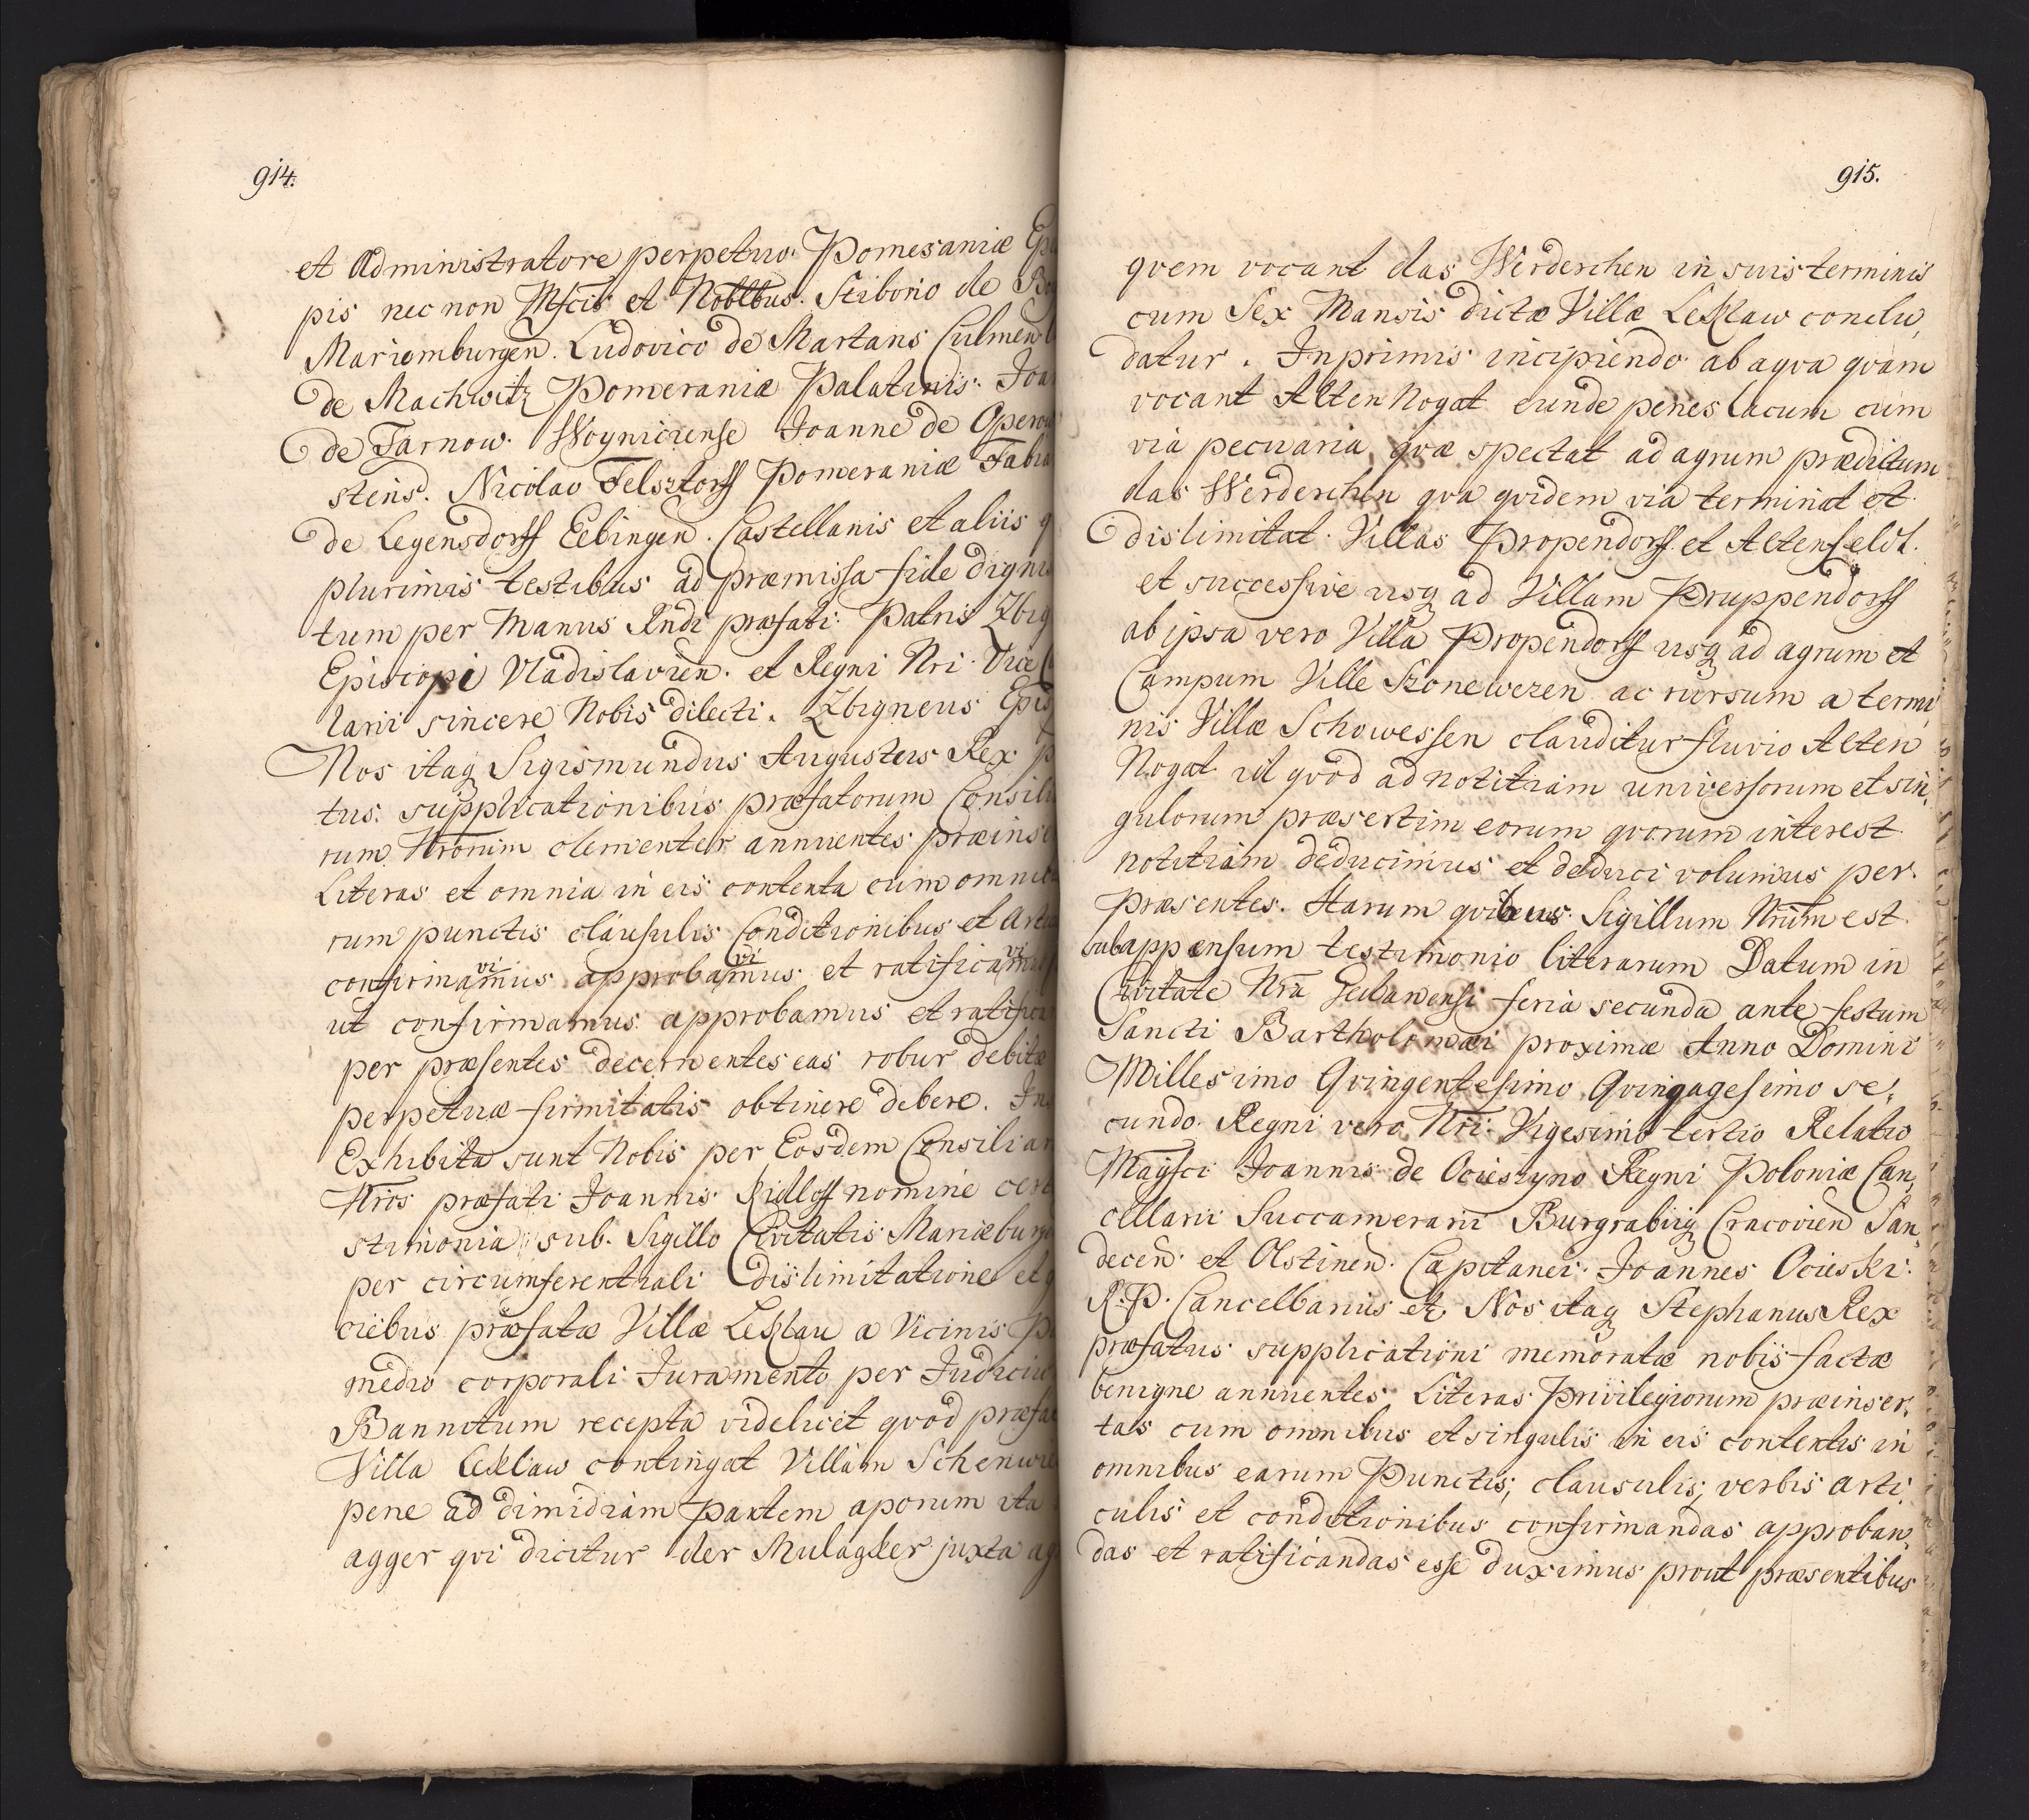 914.
et Administratore perpetuo Pomesaniæ Epi
pis nec non Mfcis et Noblbus. Stiborio de
Mariemburgen. Ludovico de Martans Culmen
de Machwitz Pomeraniæ Palatinis. Joan
de Tarnow. Woyniciense Joanne de
stens. Nicolao Felsztorff Pomeraniæ Fabia
de Legensdorff Eebingen. Castellanis et aliis q
plurimis testibus ad præmissa fide dignis
tum per Manus Rndi præfati Patris Zbig
Episcopi Vladislavien. et Regni Nri. Vice C
larii sincere Nobis dilecti. Zbigneus Epis
Nos itaq Sigismundus Augustus Rex p
tus. supplicationibus præfatorum Consili
rum Nrorum clementer annuentes præinse
Literas et omnia in eis contenta cum omni
rum punctis clausulis Conditionibus et Arti
confirmavimus approbavimus et ratificavimus
ut confirmamus approbamus et ratifica
per præsentes decernentes eas robur debitæ
perpetuæ firmitatis obtinere debere. In
Exhibita sunt Nobis per Eosdem Consiliar
Nros præfati Joannis Ridloff nomine cert
stimonia sub. Sigillo Civitatis Mariæburg
per circumferentiali dislimitatione et g
ciebus præfatæ Villæ Leszlau a Vicinis
medio corporali Juramento per Judiciu
Bannitum recepta videlicet qvod præfa
Villa Leszlaw contingat Villam Schenwie
pene ad dimidiam partem aporum ita
agger qvi dicitur der Mulagker juxta ag
915.
qvem vocant das Werderchen in suis terminis
cum Sex Mansis dictæ Villæ Leszlaw conclu,
datur. Inprimis incipiendo ab aqva qvam
vocant Alten Nogat eunde penes lacum cum
via pecuaria qvæ spectat ad agrum prædictum
das Werderchen qva qvidem via terminat et
dislimitat. Villas Propendorff et Altenfeldt.
et successive usq ad Villam Pruppendorff
ab ipsa vero Villa Propendorff usq ad agrum et
Campum Ville Szonewezen ac rursum a termi,
nis Villæ Schowessen clauditur fluvio Alten
Nogat id qvod ad notitiam universorum et sin,
gulorum præsertim eorum qvorum interest
notitiam deducimus et deduci volumus per.
præsentes. Harum qvibus Sigillum Nrum est
subappensum testimonio literarum Datum in
Civitate Nra Gedanensi feria secunda ante festum
Sancti Bartholomæi proximæ Anno Domini
Millesimo Qvingentesimo Qvinqagesimo se,
cundo. Regni vero Nri. Vigesimo tertio Relatio
Magfci Joannis de Ocieszyno Regni Poloniæ Can,
cellarii Succamerarii Burgrabiiq Cracovien San,
decen. et Olstinen. Capitanei. Joannes Ocieski.
R. P. Cancellarius etc. Nos itaq Stephanus Rex
præfatus supplicationi memoratæ nobis factæ
benigne annuentes Literas Privilegiorum præinser,
tas cum omnibus et singulis in eis contentis in
omnibus earum Punctis, clausulis, verbis arti,
culis et conditionibus confirmandas approban,
das et ratificandas esse duximus prout præsentibus